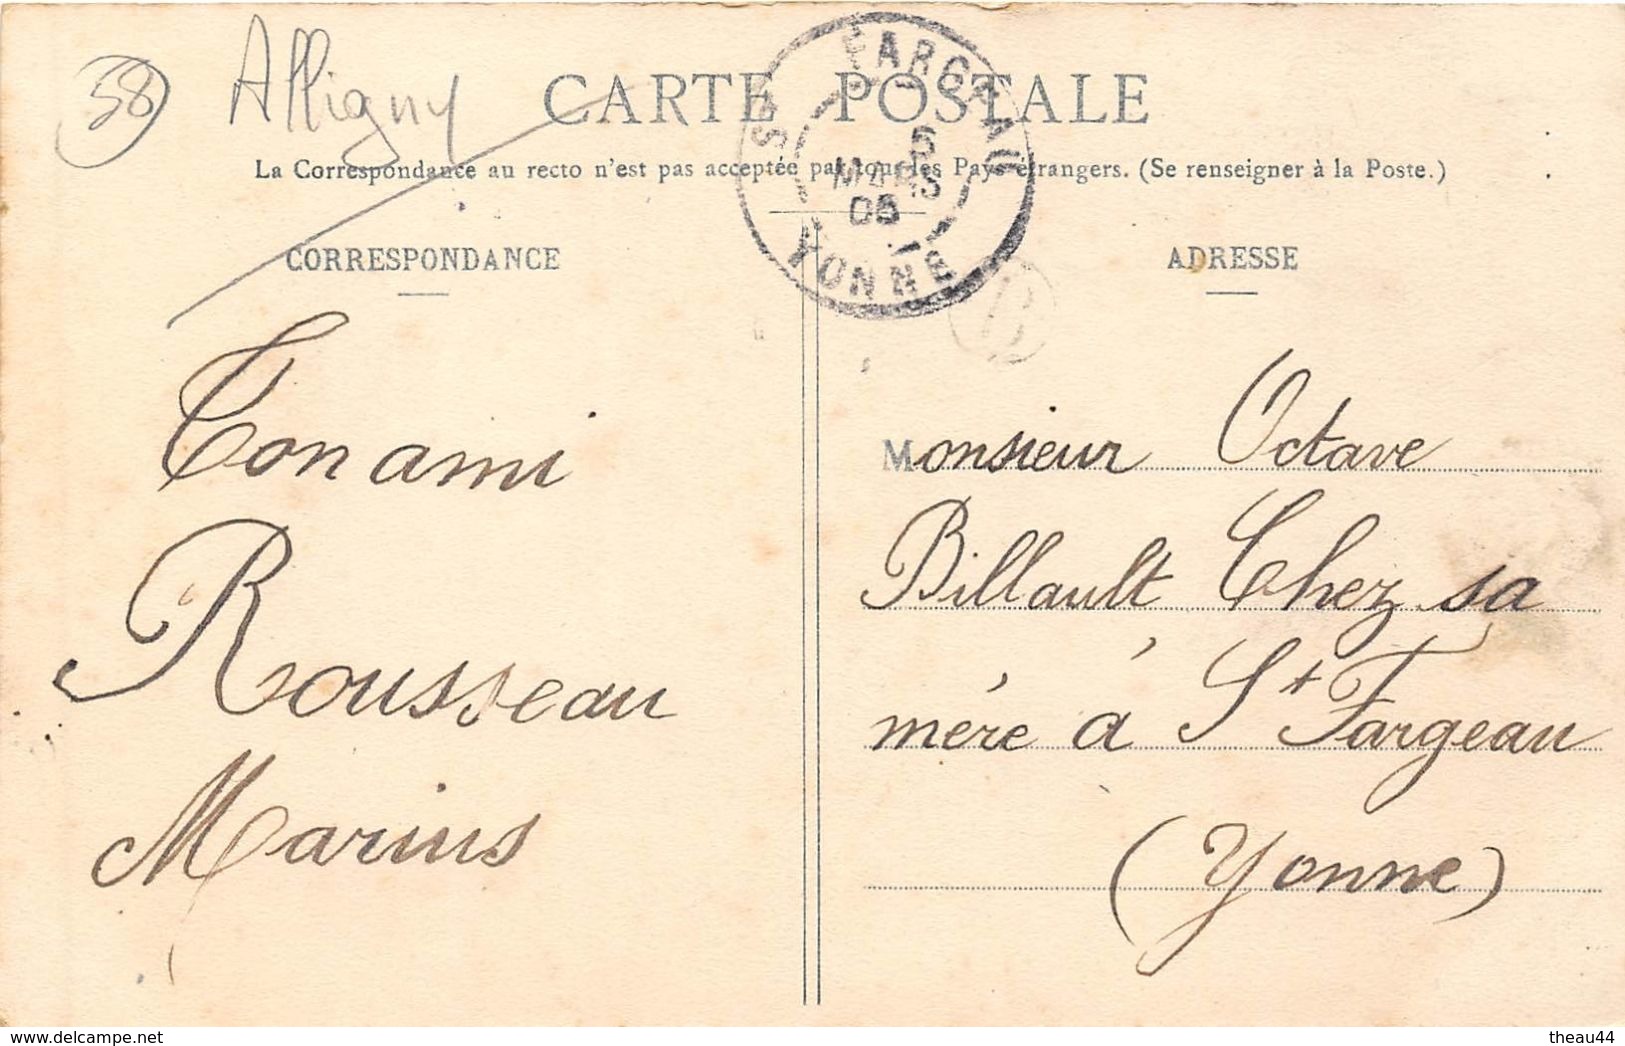 58
Alligny
CARTE POSTALE
La Correspondance au recto n'est pas acceptée par tous les Pays étrangers. (Se renseigner à la Poste.)
ST FARGEAU
5
MARS
YONNE
CORRESPONDANCE
ADRESSE
Ton ami
Rousseau
Marius
Monsieur Octave
Billault Chez sa
mére á St Fargeau
(Yonne)
www.delcampe.net
theau44